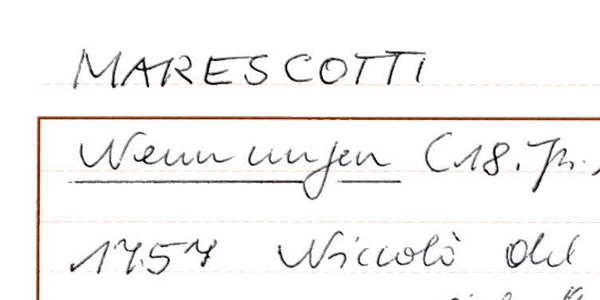 MARESCOTTI
Nennungen (18. Jh.)
1757 Niccolò del